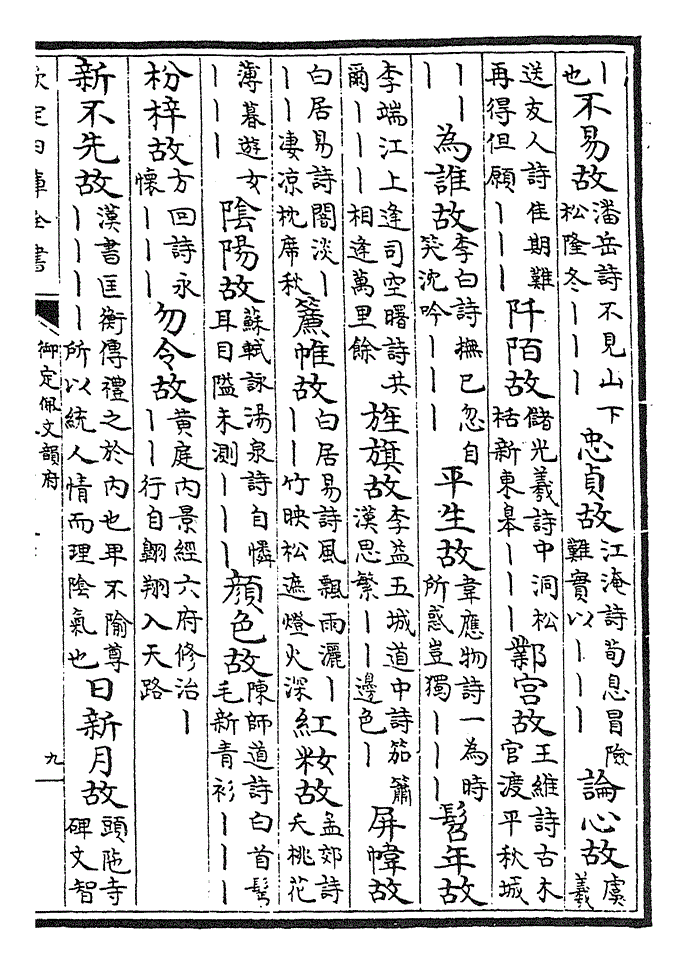 丨也不易故潘岳詩不見山下松隆冬丨丨丨忠貞故江淹詩荀息冒險難實以丨丨丨論心故虞羲
送友人詩佳期難再得但願丨丨丨阡陌故儲光羲詩中洞松栝新東皋丨丨丨鄴宮故王維詩古木官渡平秋城
丨丨丨為誰故李白詩撫己忽自笑沈吟丨丨丨平生故韋應物詩一為時所惑豈獨丨丨丨髫年故
李端江上逢司空曙詩共爾丨丨丨相逢萬里餘旌旗故李益五城道中詩笳簫漢思繁丨丨邊色丨屏幃故
白居易詩闇淡丨丨丨凄涼枕席秋簾帷故白居易詩風飄雨灑丨丨丨竹映松遮燈火深紅籹故孟郊詩夭桃花
薄暮遊女丨丨丨陰陽故蘇軾詠湯泉詩自憐耳目隘未測丨丨丨顏色故陳師道詩白首髩毛新青衫丨丨丨
枌梓故方回詩永懷丨丨丨勿令故黃庭內景經六府修治丨丨丨行自翺翔入天路
新不先故漢書匡衡傳禮之於內也卑不隃尊丨丨丨丨所以統人情而理陰氣也日新月故頭陁寺碑文智
欽定四庫全書
御定佩文韻府
九